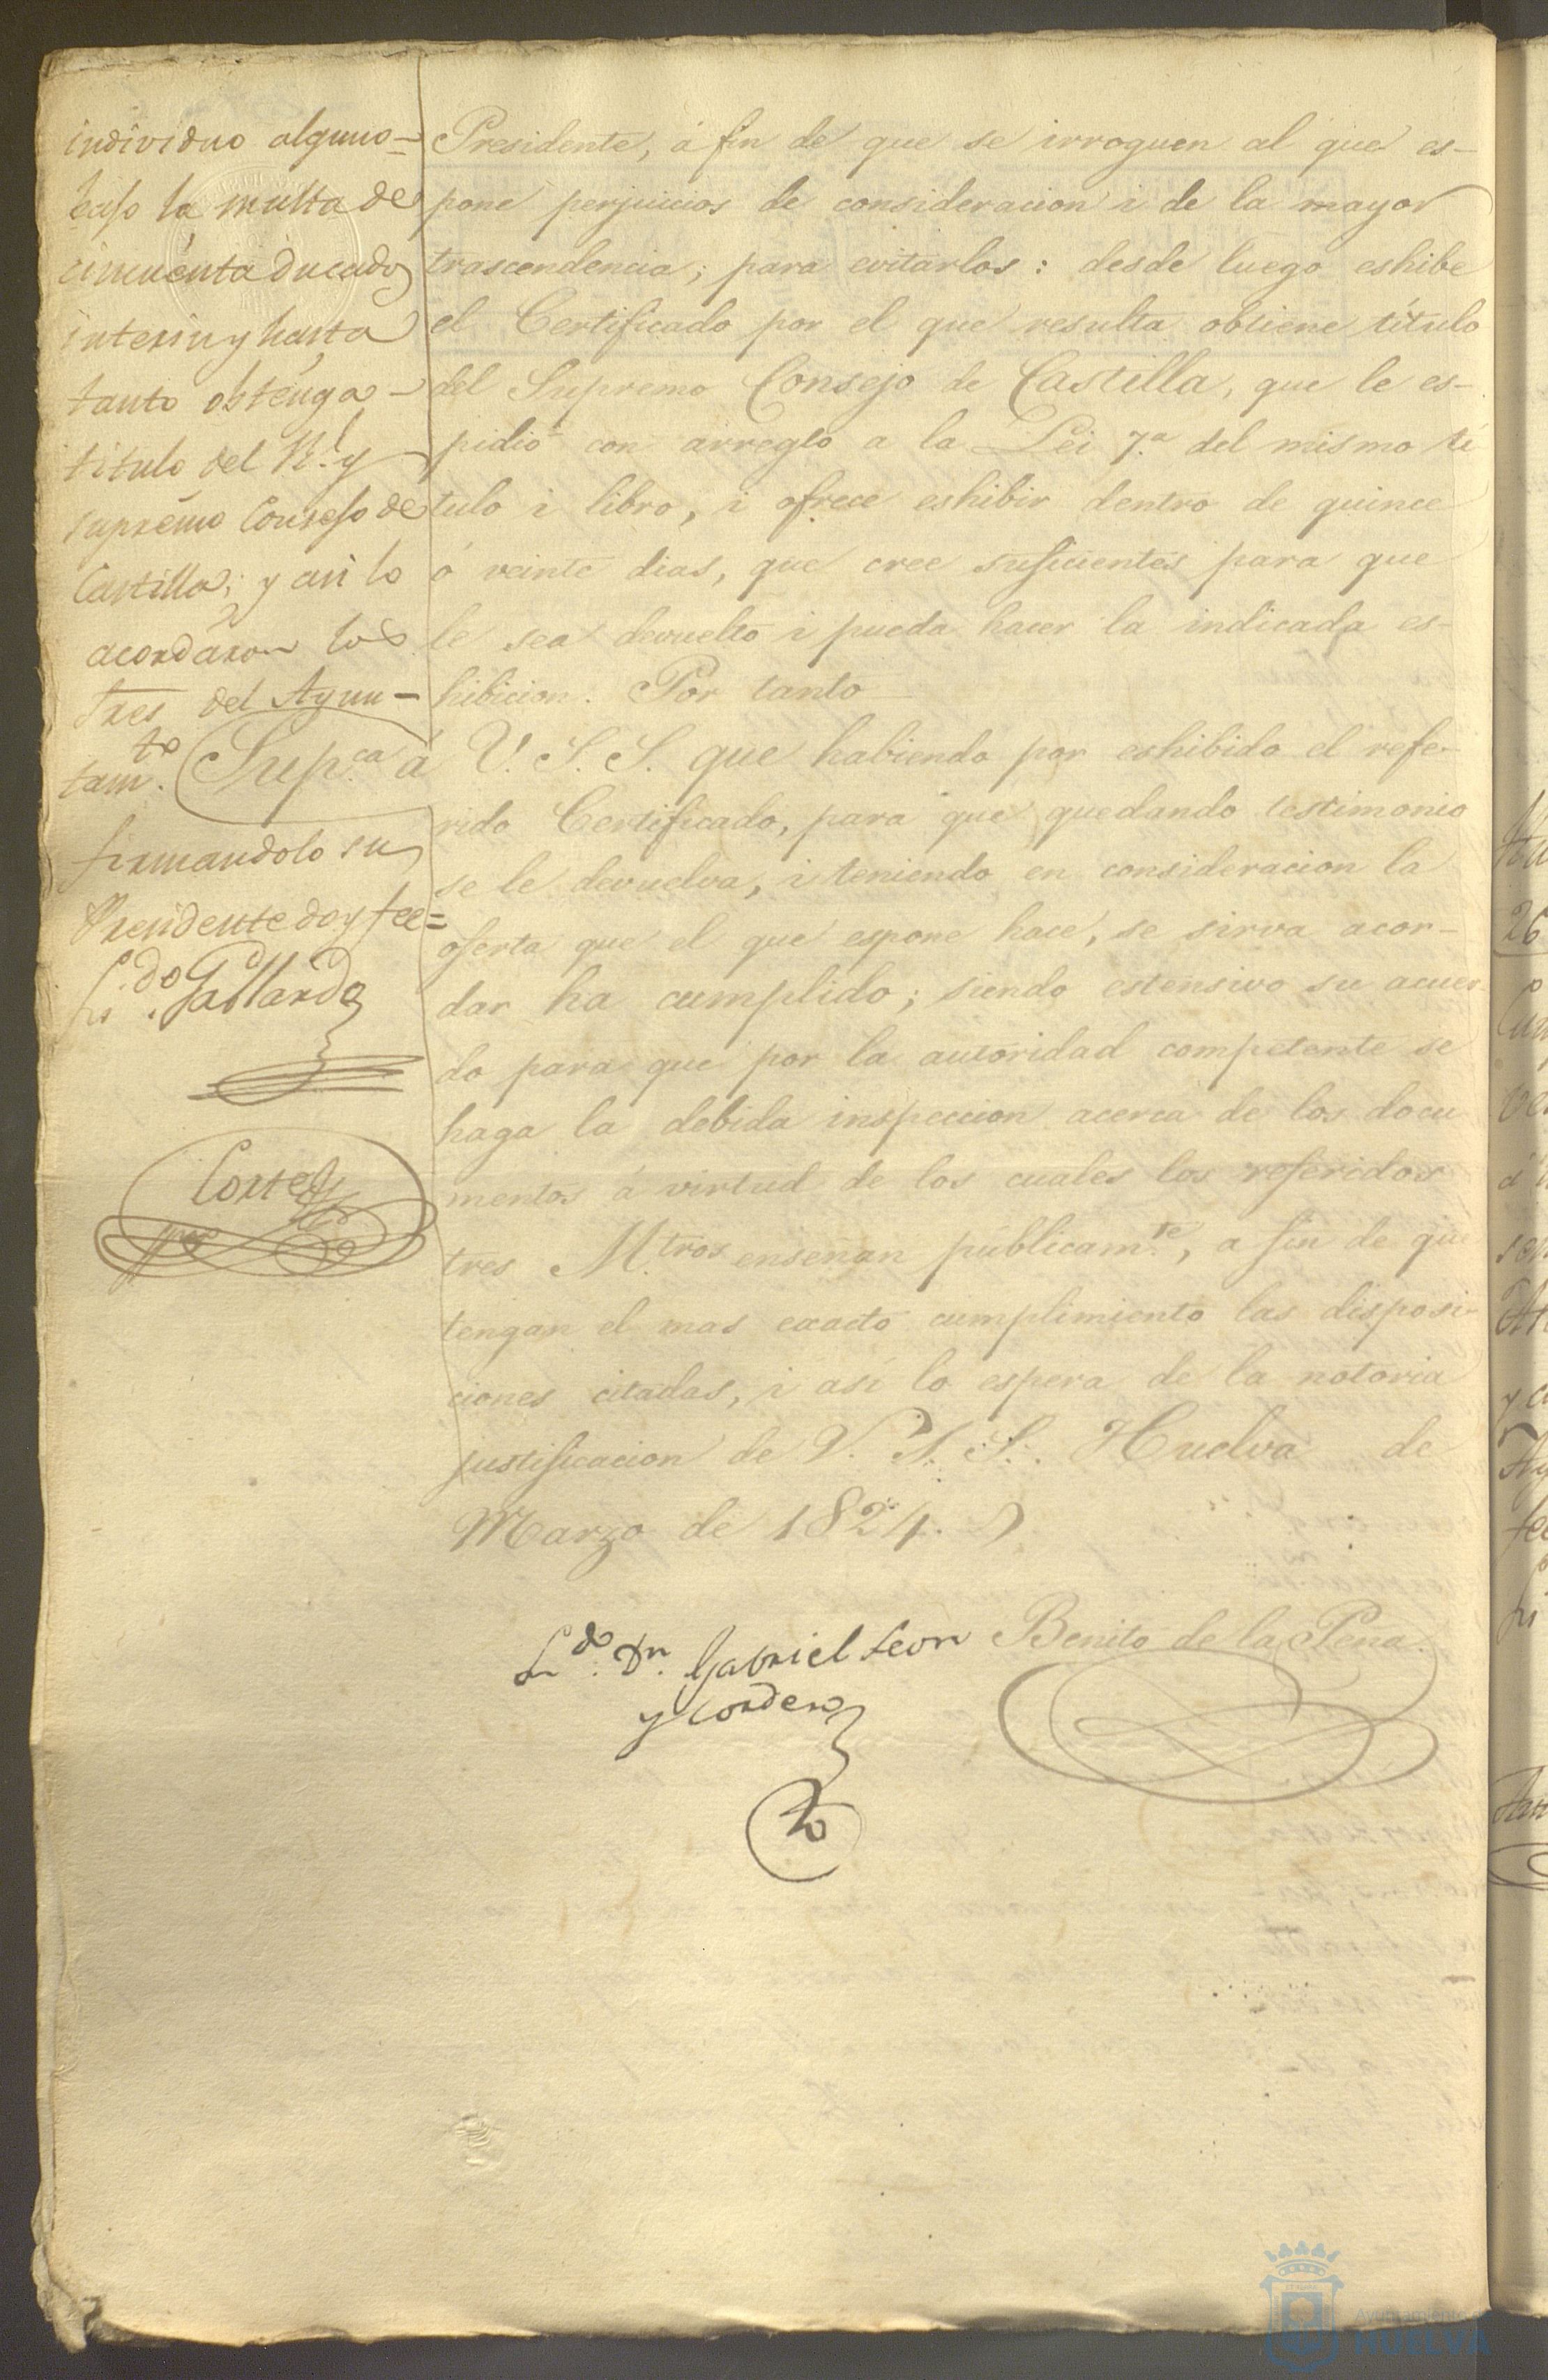 individuo alguno=
bajo la multa de
cincuenta ducados
interin y hasta
tanto obtenga-
titulo del Rl. y
supremo Consejo de
Castilla; y asi lo
acordaron los
Sres del Ayun-
tamto.
firmandolo su
Presidente doy fee=
Ldo. Gallardo
Cortes
Presidente, á fin de que se irroguen al que es-
pone perjuicios de consideracion i de la mayor
trascendencia; para evitarlos: desde luego eshibe
el Certificado por el que resulta obtiene título
del Supremo Consejo de Castilla, que le es-
pidió con arreglo a la Lei 7.a del mismo tí
tulo i libro, i ofrece eshibir dentro de quince
ó veinte dias, que cree suficientes para que
le sea devuelto i pueda hacer la indicada es-
hibicion. Por tanto
Sup.ca á V. S. S. que habiendo por eshibido el refe-
rido Certificado, para que quedando testimonio
se le devuelva, i teniendo en consideracion la
oferta que el que espone hace, se sirva acor-
dar ha cumplido; siendo estensivo su acuer-
do para que por la autoridad competente se
haga la debida inspeccion acerca de los docu
mentos á virtud de los cuales los referidos
tres M.tros enseñan públicam.te, a fin de que
tengan el mas exacto cumplimiento las disposi-
ciones citadas, i así lo espera de la notoria
justificacion de V. S. S. Huelva de
Marzo de 1824.
Ldo. Dn. Gabriel Leon
y Cordero
Benito de la Peña.
Ayuntamiento
HUELVA